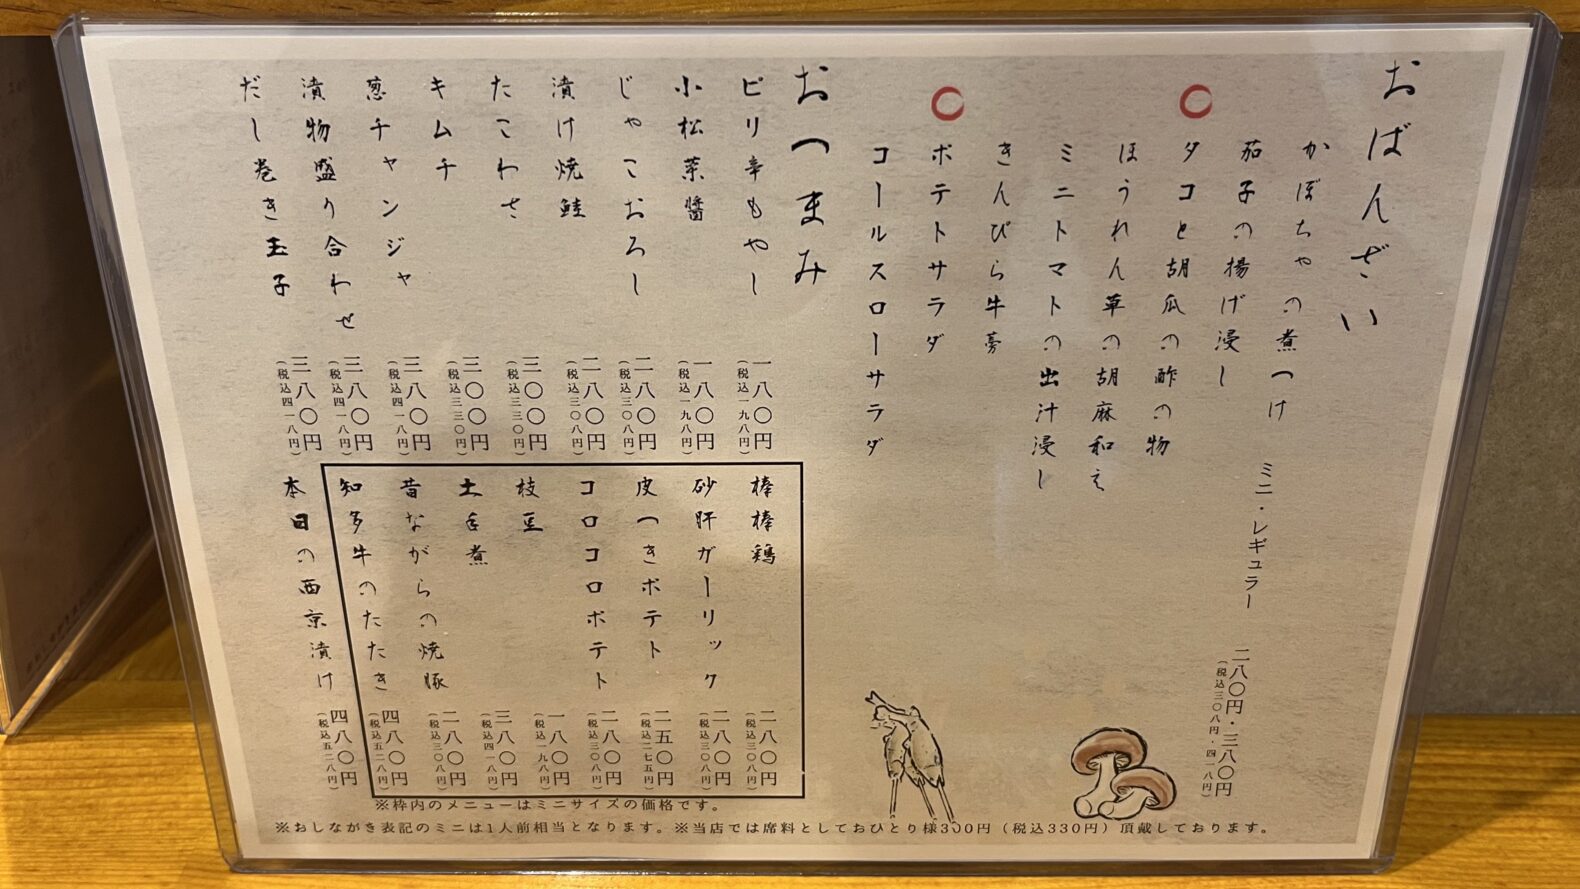 おばんざい
かぼちゃの煮つけ
茄子の揚げ浸し
タコと胡瓜の酢の物
ほうれん草の胡麻和え
ミニトマトの出汁浸し
きんぴら牛蒡
ポテトサラダ
コールスローサラダ
ミニ・レギュラー
二八〇円・三八〇円
(税込三〇八円・四一八円)
おつまみ
ピリ辛もやし 一八〇円 (税込一九八円)
小松菜醤 一八〇円 (税込一九八円)
じゃこおろし 二八〇円 (税込三〇八円)
漬け焼鮭 二八〇円 (税込三〇八円)
たこわさ 三〇〇円 (税込三三〇円)
キムチ 三〇〇円 (税込三三〇円)
葱チャンジャ 三八〇円 (税込四一八円)
漬物盛り合わせ 三八〇円 (税込四一八円)
だし巻き玉子 三八〇円 (税込四一八円)
棒棒鶏 二八〇円 (税込三〇八円)
砂肝ガーリック 二八〇円 (税込三〇八円)
皮つきポテト 二五〇円 (税込二七五円)
コロコロポテト 二八〇円 (税込三〇八円)
枝豆 一八〇円 (税込一九八円)
土手煮 三八〇円 (税込四一八円)
昔ながらの焼豚 二八〇円 (税込三〇八円)
知多牛のたたき 四八〇円 (税込五二八円)
本日の西京漬け 四八〇円 (税込五二八円)
※枠内のメニューはミニサイズの価格です。
※おしながき表記のミニは1人前相当となります。※当店では席料としておひとり様300円(税込330円)頂戴しております。